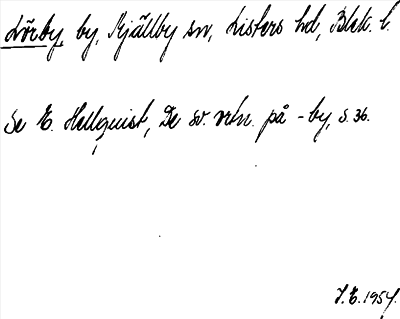 Lörby, by, Mjällby sn, Listers hd, Blek. l.
Se E. Hellquist, De sv. ortn. på -by, s. 36.
J.E. 1954.